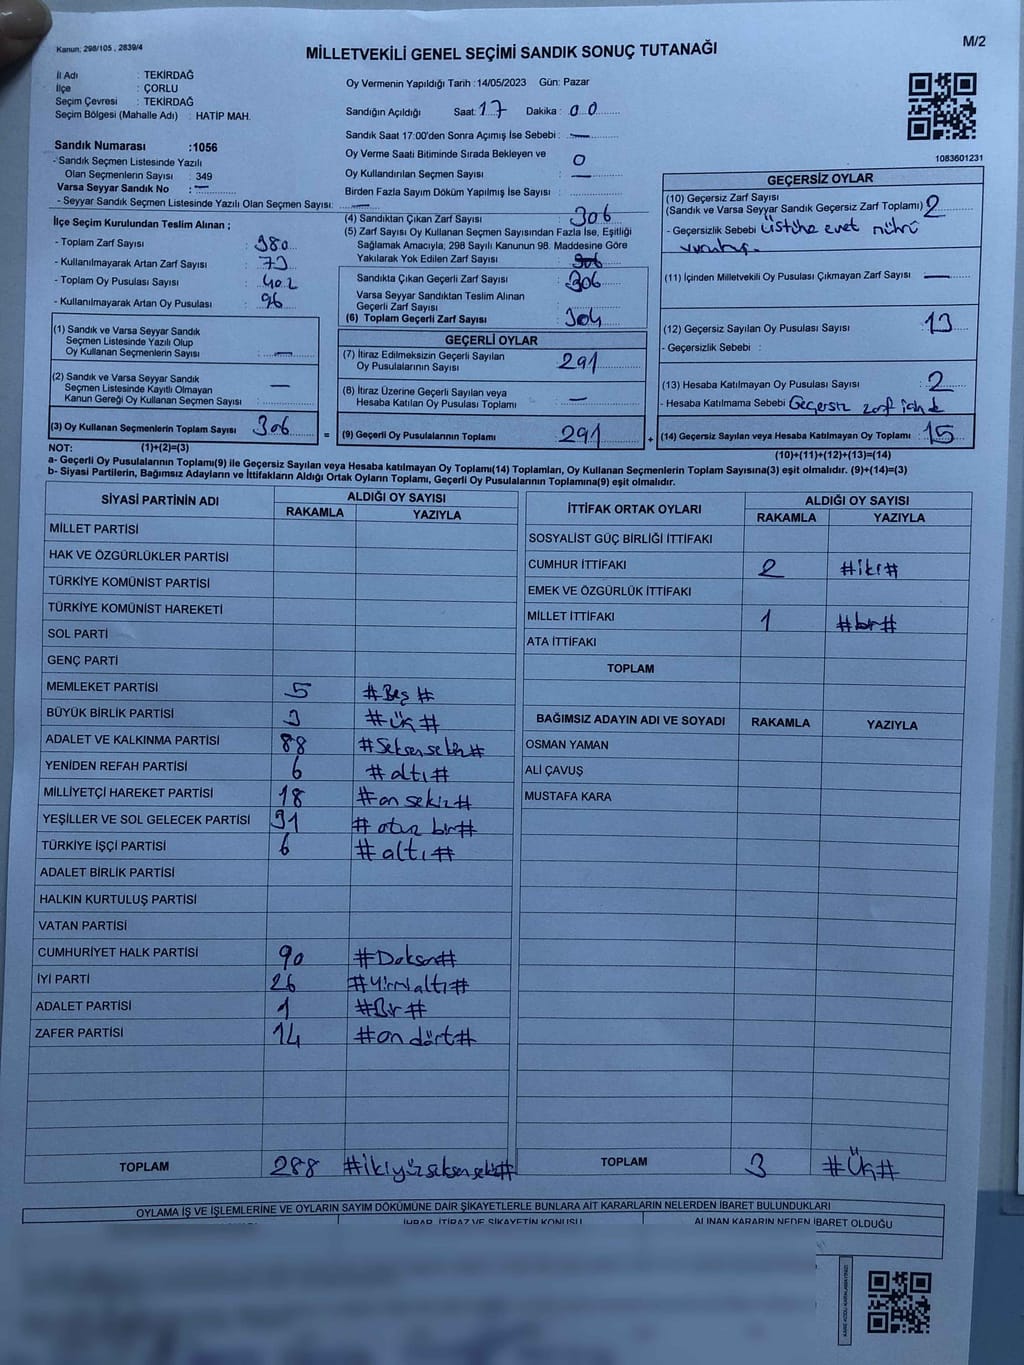 Kanun; 298/105 , 2839/4
M/2
MİLLETVEKİLİ GENEL SEÇİMİ SANDIK SONUÇ TUTANAĞI
İl Adı : TEKİRDAĞ
İlçe : ÇORLU
Seçim Çevresi : TEKİRDAĞ
Seçim Bölgesi (Mahalle Adı) : HATİP MAH.
Sandık Numarası :1056
- Sandık Seçmen Listesinde Yazılı
Olan Seçmenlerin Sayısı : 349
Varsa Seyyar Sandık No : —
- Seyyar Sandık Seçmen Listesinde Yazılı Olan Seçmen Sayısı: —
Oy Vermenin Yapıldığı Tarih :14/05/2023 Gün: Pazar
Sandığın Açıldığı Saat: 17 Dakika : 00
Sandık Saat 17:00'den Sonra Açımış İse Sebebi : —
Oy Verme Saati Bitiminde Sırada Bekleyen ve 0
Oy Kullandırılan Seçmen Sayısı : —
Birden Fazla Sayım Döküm Yapılmış İse Sayısı :
1083601231
İlçe Seçim Kurulundan Teslim Alınan ;
- Toplam Zarf Sayısı : 380
- Kullanılmayarak Artan Zarf Sayısı : 73
- Toplam Oy Pusulası Sayısı : 402
- Kullanılmayarak Artan Oy Pusulası : 96
(1) Sandık ve Varsa Seyyar Sandık
Seçmen Listesinde Yazılı Olup
Oy Kullanan Seçmenlerin Sayısı : —
(2) Sandık ve Varsa Seyyar Sandık
Seçmen Listesinde Kayıtlı Olmayan —
Kanun Gereği Oy Kullanan Seçmen Sayısı :
(3) Oy Kullanan Seçmenlerin Toplam Sayısı : 306
(1)+(2)=(3)
(4) Sandıktan Çıkan Zarf Sayısı : 306
(5) Zarf Sayısı Oy Kullanan Seçmen Sayısından Fazla İse, Eşitliği
Sağlamak Amacıyla; 298 Sayılı Kanunun 98. Maddesine Göre
Yakılarak Yok Edilen Zarf Sayısı :
Sandıkta Çıkan Geçerli Zarf Sayısı : 306
Varsa Seyyar Sandıktan Teslim Alınan
Geçerli Zarf Sayısı :
(6) Toplam Geçerli Zarf Sayısı : 304
GEÇERLİ OYLAR
(7) İtiraz Edilmeksizin Geçerli Sayılan
Oy Pusulalarının Sayısı : 291
(8) İtiraz Üzerine Geçerli Sayılan veya
Hesaba Katılan Oy Pusulası Toplamı : —
= (9) Geçerli Oy Pusulalarının Toplamı : 291
GEÇERSİZ OYLAR
(10) Geçersiz Zarf Sayısı
(Sandık ve Varsa Seyyar Sandık Geçersiz Zarf Toplamı) : 2
- Geçersizlik Sebebi : üstüne evet mührü
(11) İçinden Milletvekili Oy Pusulası Çıkmayan Zarf Sayısı : —
(12) Geçersiz Sayılan Oy Pusulası Sayısı : 13
- Geçersizlik Sebebi :
(13) Hesaba Katılmayan Oy Pusulası Sayısı : 2
- Hesaba Katılmama Sebebi : Geçersiz zarf
+ (14) Geçersiz Sayılan veya Hesaba Katılmayan Oy Toplamı : 15
(10)+(11)+(12)+(13)=(14)
NOT:
a- Geçerli Oy Pusulalarının Toplamı(9) ile Geçersiz Sayılan veya Hesaba katılmayan Oy Toplamı(14) Toplamları, Oy Kullanan Seçmenlerin Toplam Sayısına(3) eşit olmalıdır. (9)+(14)=(3)
b- Siyasi Partilerin, Bağımsız Adayların ve İttifakların Aldığı Ortak Oyların Toplamı, Geçerli Oy Pusulalarının Toplamına(9) eşit olmalıdır.
SİYASİ PARTİNİN ADI ALDIĞI OY SAYISI
RAKAMLA YAZIYLA
MİLLET PARTİSİ
HAK VE ÖZGÜRLÜKLER PARTİSİ
TÜRKİYE KOMÜNİST PARTİSİ
TÜRKİYE KOMÜNİST HAREKETİ
SOL PARTİ
GENÇ PARTİ
MEMLEKET PARTİSİ 5 #Beş#
BÜYÜK BİRLİK PARTİSİ 3 #üç#
ADALET VE KALKINMA PARTİSİ 88 #Seksensekiz#
YENİDEN REFAH PARTİSİ 6 #altı#
MİLLİYETÇİ HAREKET PARTİSİ 18 #on sekiz#
YEŞİLLER VE SOL GELECEK PARTİSİ 31 #otuz bir#
TÜRKİYE İŞÇİ PARTİSİ 6 #altı#
ADALET BİRLİK PARTİSİ
HALKIN KURTULUŞ PARTİSİ
VATAN PARTİSİ
CUMHURİYET HALK PARTİSİ 90 #Doksan#
İYİ PARTİ 26 #Yirmialtı#
ADALET PARTİSİ 1 #Bir#
ZAFER PARTİSİ 14 #on dört#
TOPLAM 288 #ikiyüzseksensekiz#
İTTİFAK ORTAK OYLARI ALDIĞI OY SAYISI
RAKAMLA YAZIYLA
SOSYALİST GÜÇ BİRLİĞİ İTTİFAKI
CUMHUR İTTİFAKI 2 #iki#
EMEK VE ÖZGÜRLÜK İTTİFAKI
MİLLET İTTİFAKI 1 #bir#
ATA İTTİFAKI
TOPLAM
BAĞIMSIZ ADAYIN ADI VE SOYADI RAKAMLA YAZIYLA
OSMAN YAMAN
ALİ ÇAVUŞ
MUSTAFA KARA
TOPLAM 3 #Üç#
OYLAMA İŞ VE İŞLEMLERİNE VE OYLARIN SAYIM DÖKÜMÜNE DAİR ŞİKAYETLERLE BUNLARA AİT KARARLARIN NELERDEN İBARET BULUNDUKLARI
İHBAR, İTİRAZ VE ŞİKAYETİN KONUSU ALINAN KARARIN NEDEN İBARET OLDUĞU